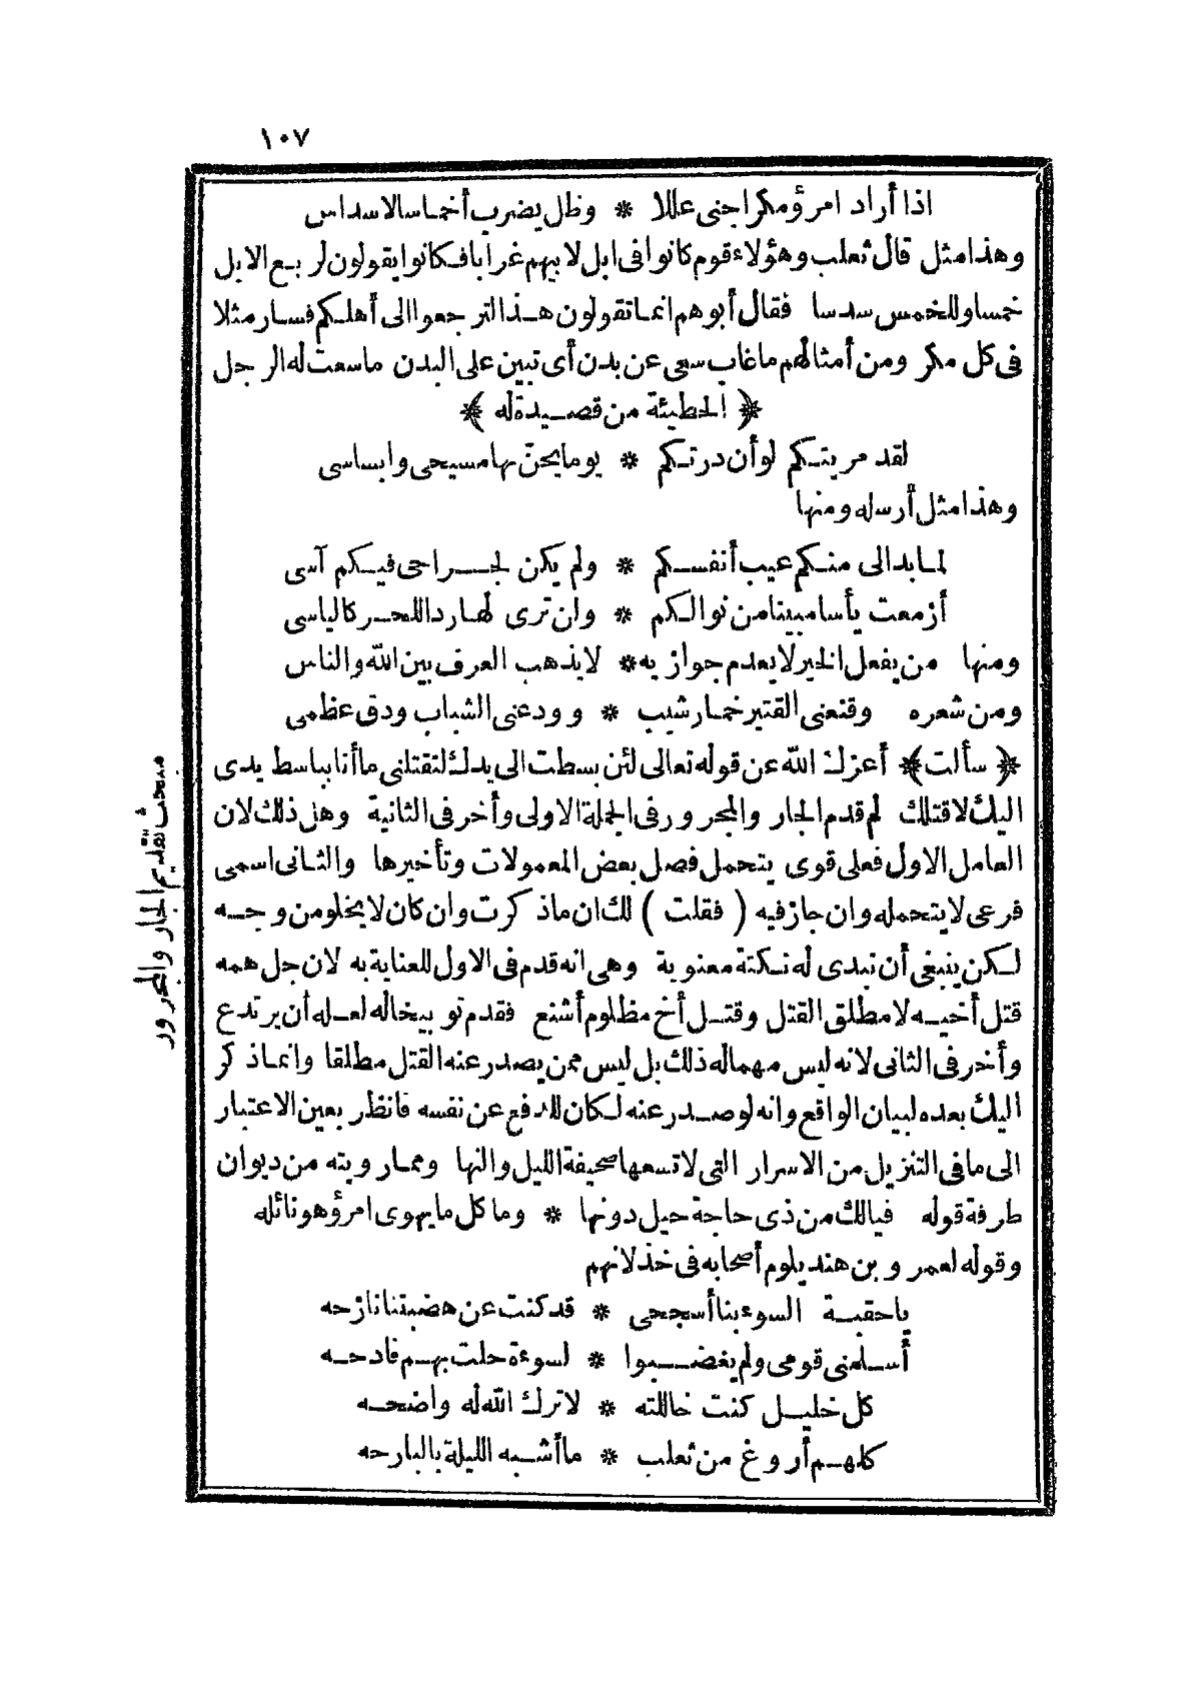 ١٠٧
اذا أراد امرؤ مكرا جنى عللا * وظل يضرب أخماسا لاسداس
وهذا مثل قال ثعلب وهؤلاء قوم كانوا فى ابل لابيهم غرابا فكانوا يقولون لربع الابل
خمسا وللخمس سدسا فقال أبوهم انما تقولون هذا لترجعوا الى أهلكم فسار مثلا
فى كل مكر ومن أمثالهم ما غاب سعى عن بدن أى تبين على البدن ما سعت له الرجل
﴿ الحطيئة من قصيدة له ﴾
لقد مريتكم لو أن درتكم * يوما يحن بها مسيحى وابساسى
وهذا مثل أرسله ومنها
لما بدالى منكم عيب أنفسكم * ولم يكن لجراحى فيكم آسى
أزمعت يأسا مبينا من نوالكم * وان ترى لها رداللحر كالياسى
ومنها من يفعل الخير لا يعدم جوازيه * لا يذهب العرف بين الله والناس
ومن شعره وقنعنى القتير خمار شيب * وودعنى الشباب ودق عظمى
﴿ سألت ﴾ أعزك الله عن قوله تعالى لئن بسطت الى يدك لتقتلنى ما أنا بباسط يدى
اليك لاقتلك لم قدم الجار والمجرور فى الجملة الاولى وأخر فى الثانية وهل ذلك لان
العامل الاول فعلى قوى يتحمل فصل بعض المعمولات وتأخيرها والثانى اسمى
فرعى لا يتحمله وان جاز فيه ( فقلت ) لك ان ما ذكرت وان كان لا يخلو من وجه
لكن ينبغى أن نبدى له نكتة معنوية وهى انه قدم فى الاول للعناية به لان جل همه
قتل أخيه لا مطلق القتل وقتل أخ مظلوم أشنع فقدم توبيخاله لعله أن يرتدع
وأخر فى الثانى لانه ليس مهماله ذلك بل ليس ممن يصدر عنه القتل مطلقا وانما ذكر
اليك بعده لبيان الواقع وانه لو صدر عنه لكان للدفع عن نفسه فانظر بعين الاعتبار
الى ما فى التنزيل من الاسرار التى لا تسعها صحيفة الليل والنها ومما رويته من ديوان
طرفة قوله فيالك من ذى حاجة حيل دونها * وما كل ما يهوى امرؤ هو نائله
وقوله لعمرو بن هند يلوم أصحابه فى خذلانهم
ياحقبة السوء بنا أسجحى * قد كنت عن هضبتنا نازحه
أسلمنى قومى ولم يغضبوا * لسوءة حلت بهم فادحه
كل خليل كنت خاللته * لا ترك الله له واضحه
كلهم أروغ من ثعلب * ما أشبه الليلة بالبارحه
مبحث تقديم الجار والمجرور